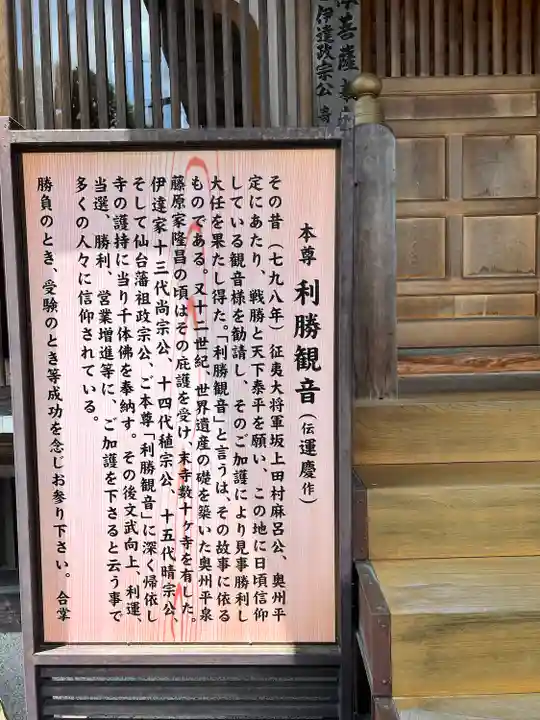 菩薩
伊達政宗公
本尊 利勝観音(伝運慶作)
その昔(七九八年)征夷大将軍坂上田村麻呂公、奥州平
定にあたり、戦勝と天下泰平を願い、この地に日頃信仰
している観音様を勧請し、そのご加護により見事勝利し
大任を果たし得た。「利勝観音」と言うは、その故事に依る
ものである。又十二世紀、世界遺産の礎を築いた奥州平泉
藤原家隆昌の頃はその庇護を受け、末寺数十ヶ寺を有した。
伊達家十三代尚宗公、十四代稙宗公、十五代晴宗公、
そして仙台藩祖政宗公、ご本尊「利勝観音」に深く帰依し
寺の護持に当り千体佛を奉納す。その後文武向上、利運、
当選、勝利、営業増進等に、ご加護を下さると云う事で
多くの人々に信仰されている。
勝負のとき、受験のとき等成功を念じお参り下さい。 合掌